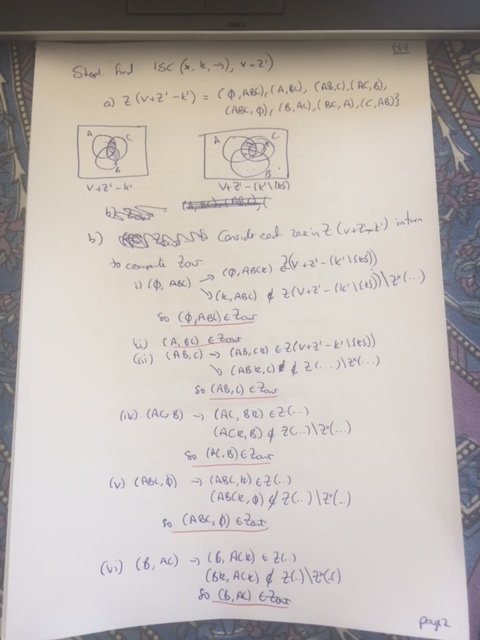 Step1 find ISC (x, k, →), x+z')
a) Z (V+Z'-k') = (ϕ, ABC), (A, BC), (AB,C), (AC, B),
(ABC, ϕ), (B, AC), (BC, A), (C, AB)}
A C
B
V+Z'-k'
A C
B
V+Z'-(k'\{k})
b) Consider each zone in Z (V+Z'-k') in turn
to compute Zout
i) (ϕ, ABC) → (ϕ, ABCk) Z(V+Z'-(k'\{k}))
↘ (k, ABC) ∉ Z(V+Z'-(k'\{k}))\Z*(...)
So (ϕ, ABC) ∈ Zout
ii) (A, BC) ∈ Zout
(iii) (AB, C) → (AB, Ck) ∈ Z(V+Z'-(k'\{k}))
↘ (ABk, C) ∉ Z(...)\Z*(...)
So (AB, C) ∈ Zout
(iv) (AC, B) → (AC, Bk) ∈ Z(...)
(ACk, B) ∉ Z(...)\Z*(...)
So (AC, B) ∈ Zout
(v) (ABC, ϕ) → (ABC, k) ∈ Z(..)
(ABCk, ϕ) ∉ Z(..)\Z*(..)
So (ABC, ϕ) ∈ Zout
(vi) (B, AC) → (B, ACk) ∈ Z(..)
(Bk, ACk) ∉ Z(..)\Z*(..)
So (B, AC) ∈ Zout
page 2